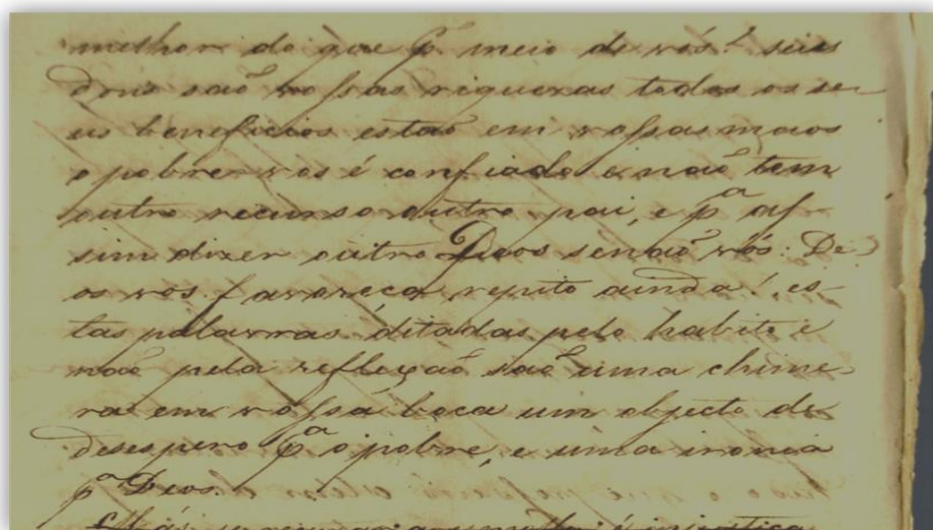 melhor do que p. meio de vós! seus
dons saõ vossas riquezas todos os se-
us beneficios estaõ em vossas maos
o pobre vos é confiado e naõ tem
outro recurso outro pai, e pª as-
sim dizer outro Deos senaõ vós: De-
os vos favoreça repito ainda! es-
tas palavras ditadas pelo habito e
naõ pela reflexaõ saõ uma chime-
ra em vossa boca um objecto de
desespero pª o pobre, e uma ironia
pª Deos.